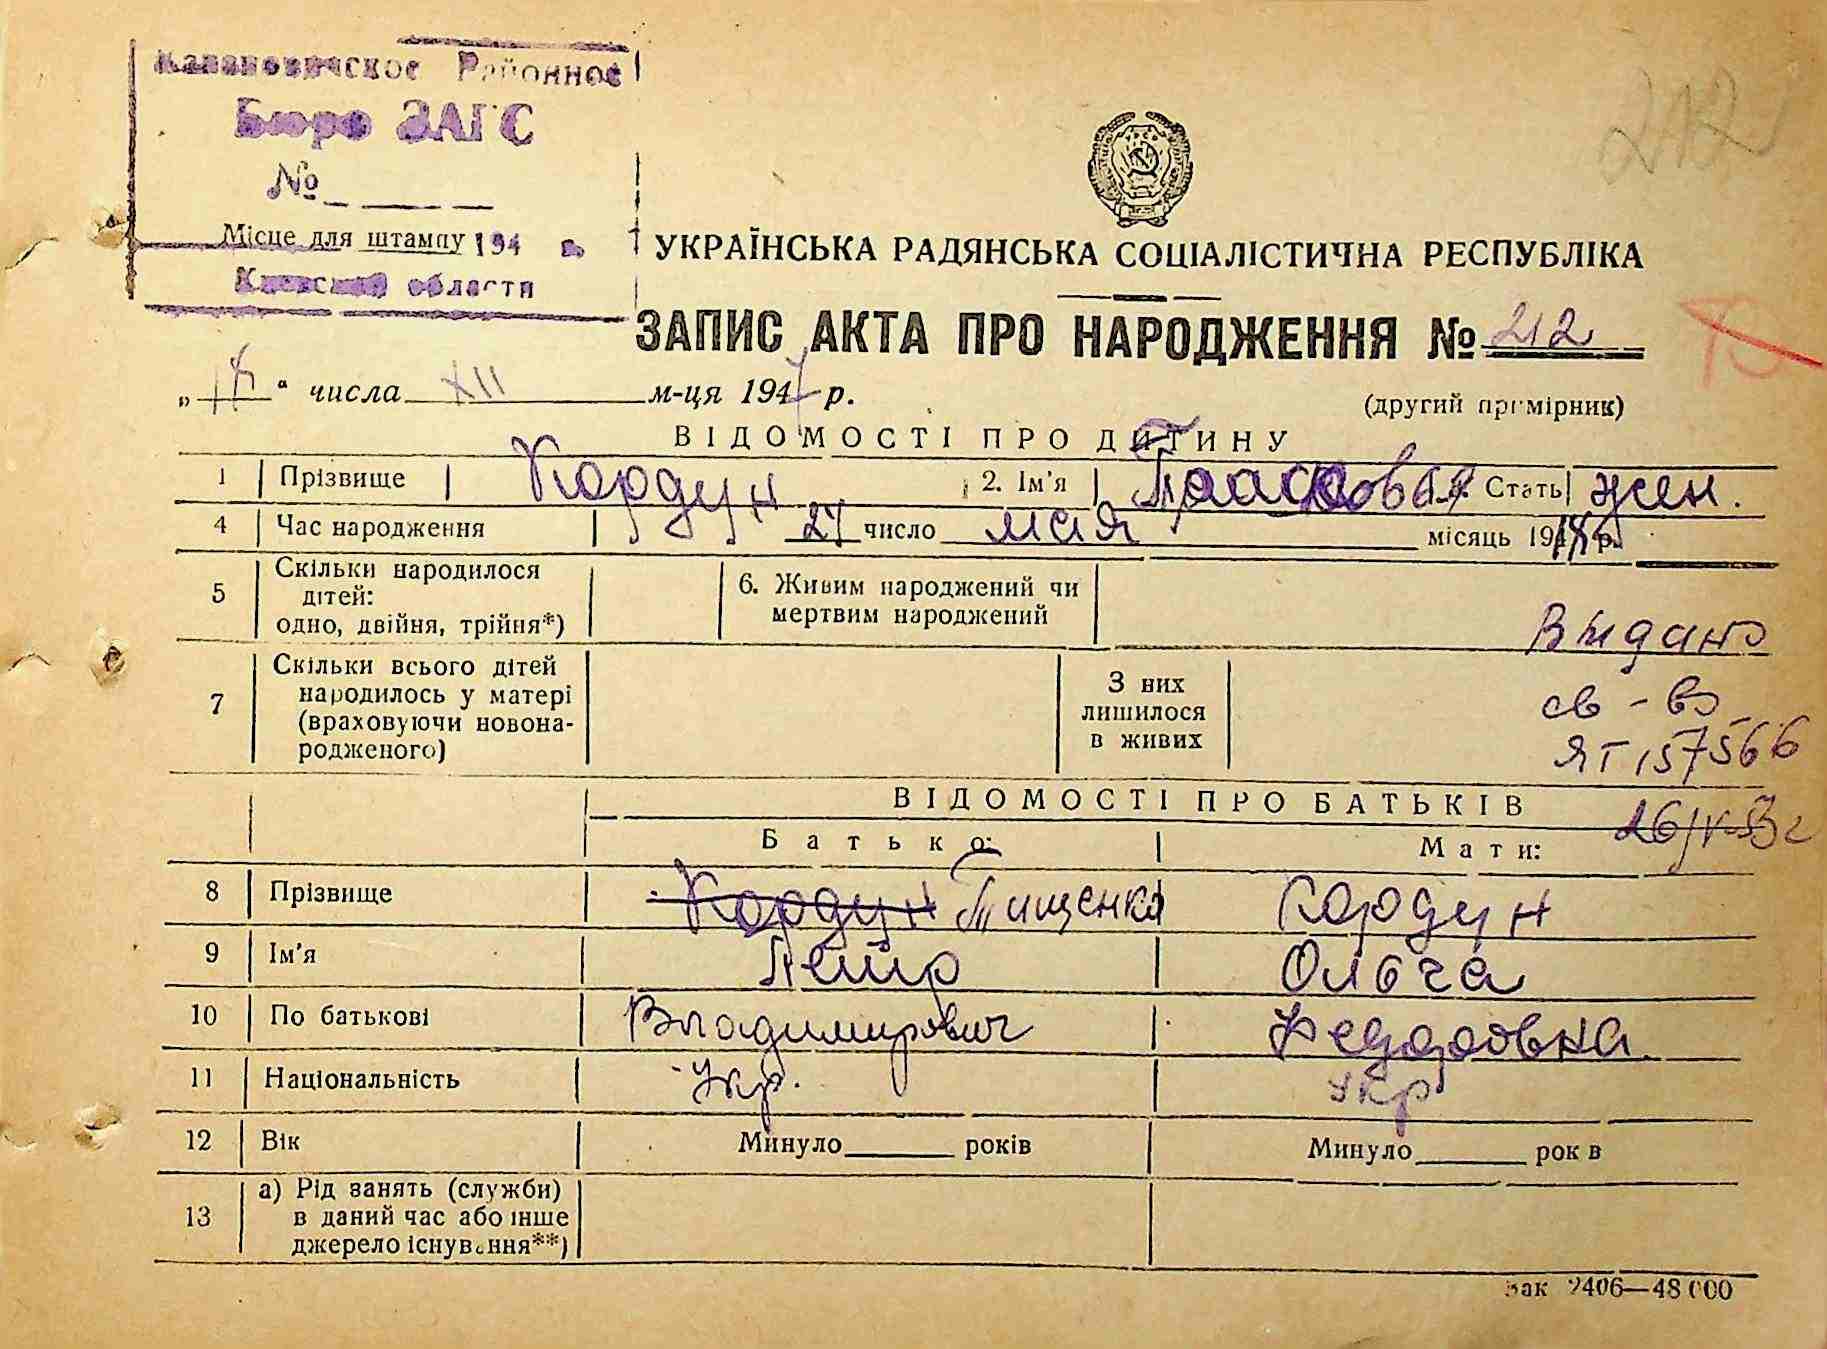 Кагановичское Районное
212
Бюро ЗАГС
№
Місце для штампу 194 г.
Киевской области
УКРАЇНСЬКА РАДЯНСЬКА СОЦІАЛІСТИЧНА РЕСПУБЛІКА
ЗАПИС АКТА ПРО НАРОДЖЕННЯ № 212
" " числа XII м-ця 1947 р.
(другий примірник)
ВІДОМОСТІ ПРО ДИТИНУ
1 Прізвище Кордун 2. Ім'я Прасковья Стать жен.
4 Час народження 27 число мая місяць 19 р.
5 Скільки народилося дітей: одно, двійня, трійня*) 6. Живим народжений чи мертвим народжений
Выдано
7 Скільки всього дітей народилось у матері (враховуючи новонародженого) З них лишилося в живих
св-во
ЯТ 157566
26/IV-53г
ВІДОМОСТІ ПРО БАТЬКІВ
Батько: Мати:
8 Прізвище Кордун Тищенко Кордун
9 Ім'я Петр Ольга
10 По батькові Владимирович Федоровна
11 Національність Укр. Укр
12 Вік Минуло років Минуло рок в
13 а) Рід занять (служби) в даний час або інше джерело існування**)
Зак 2406—48000